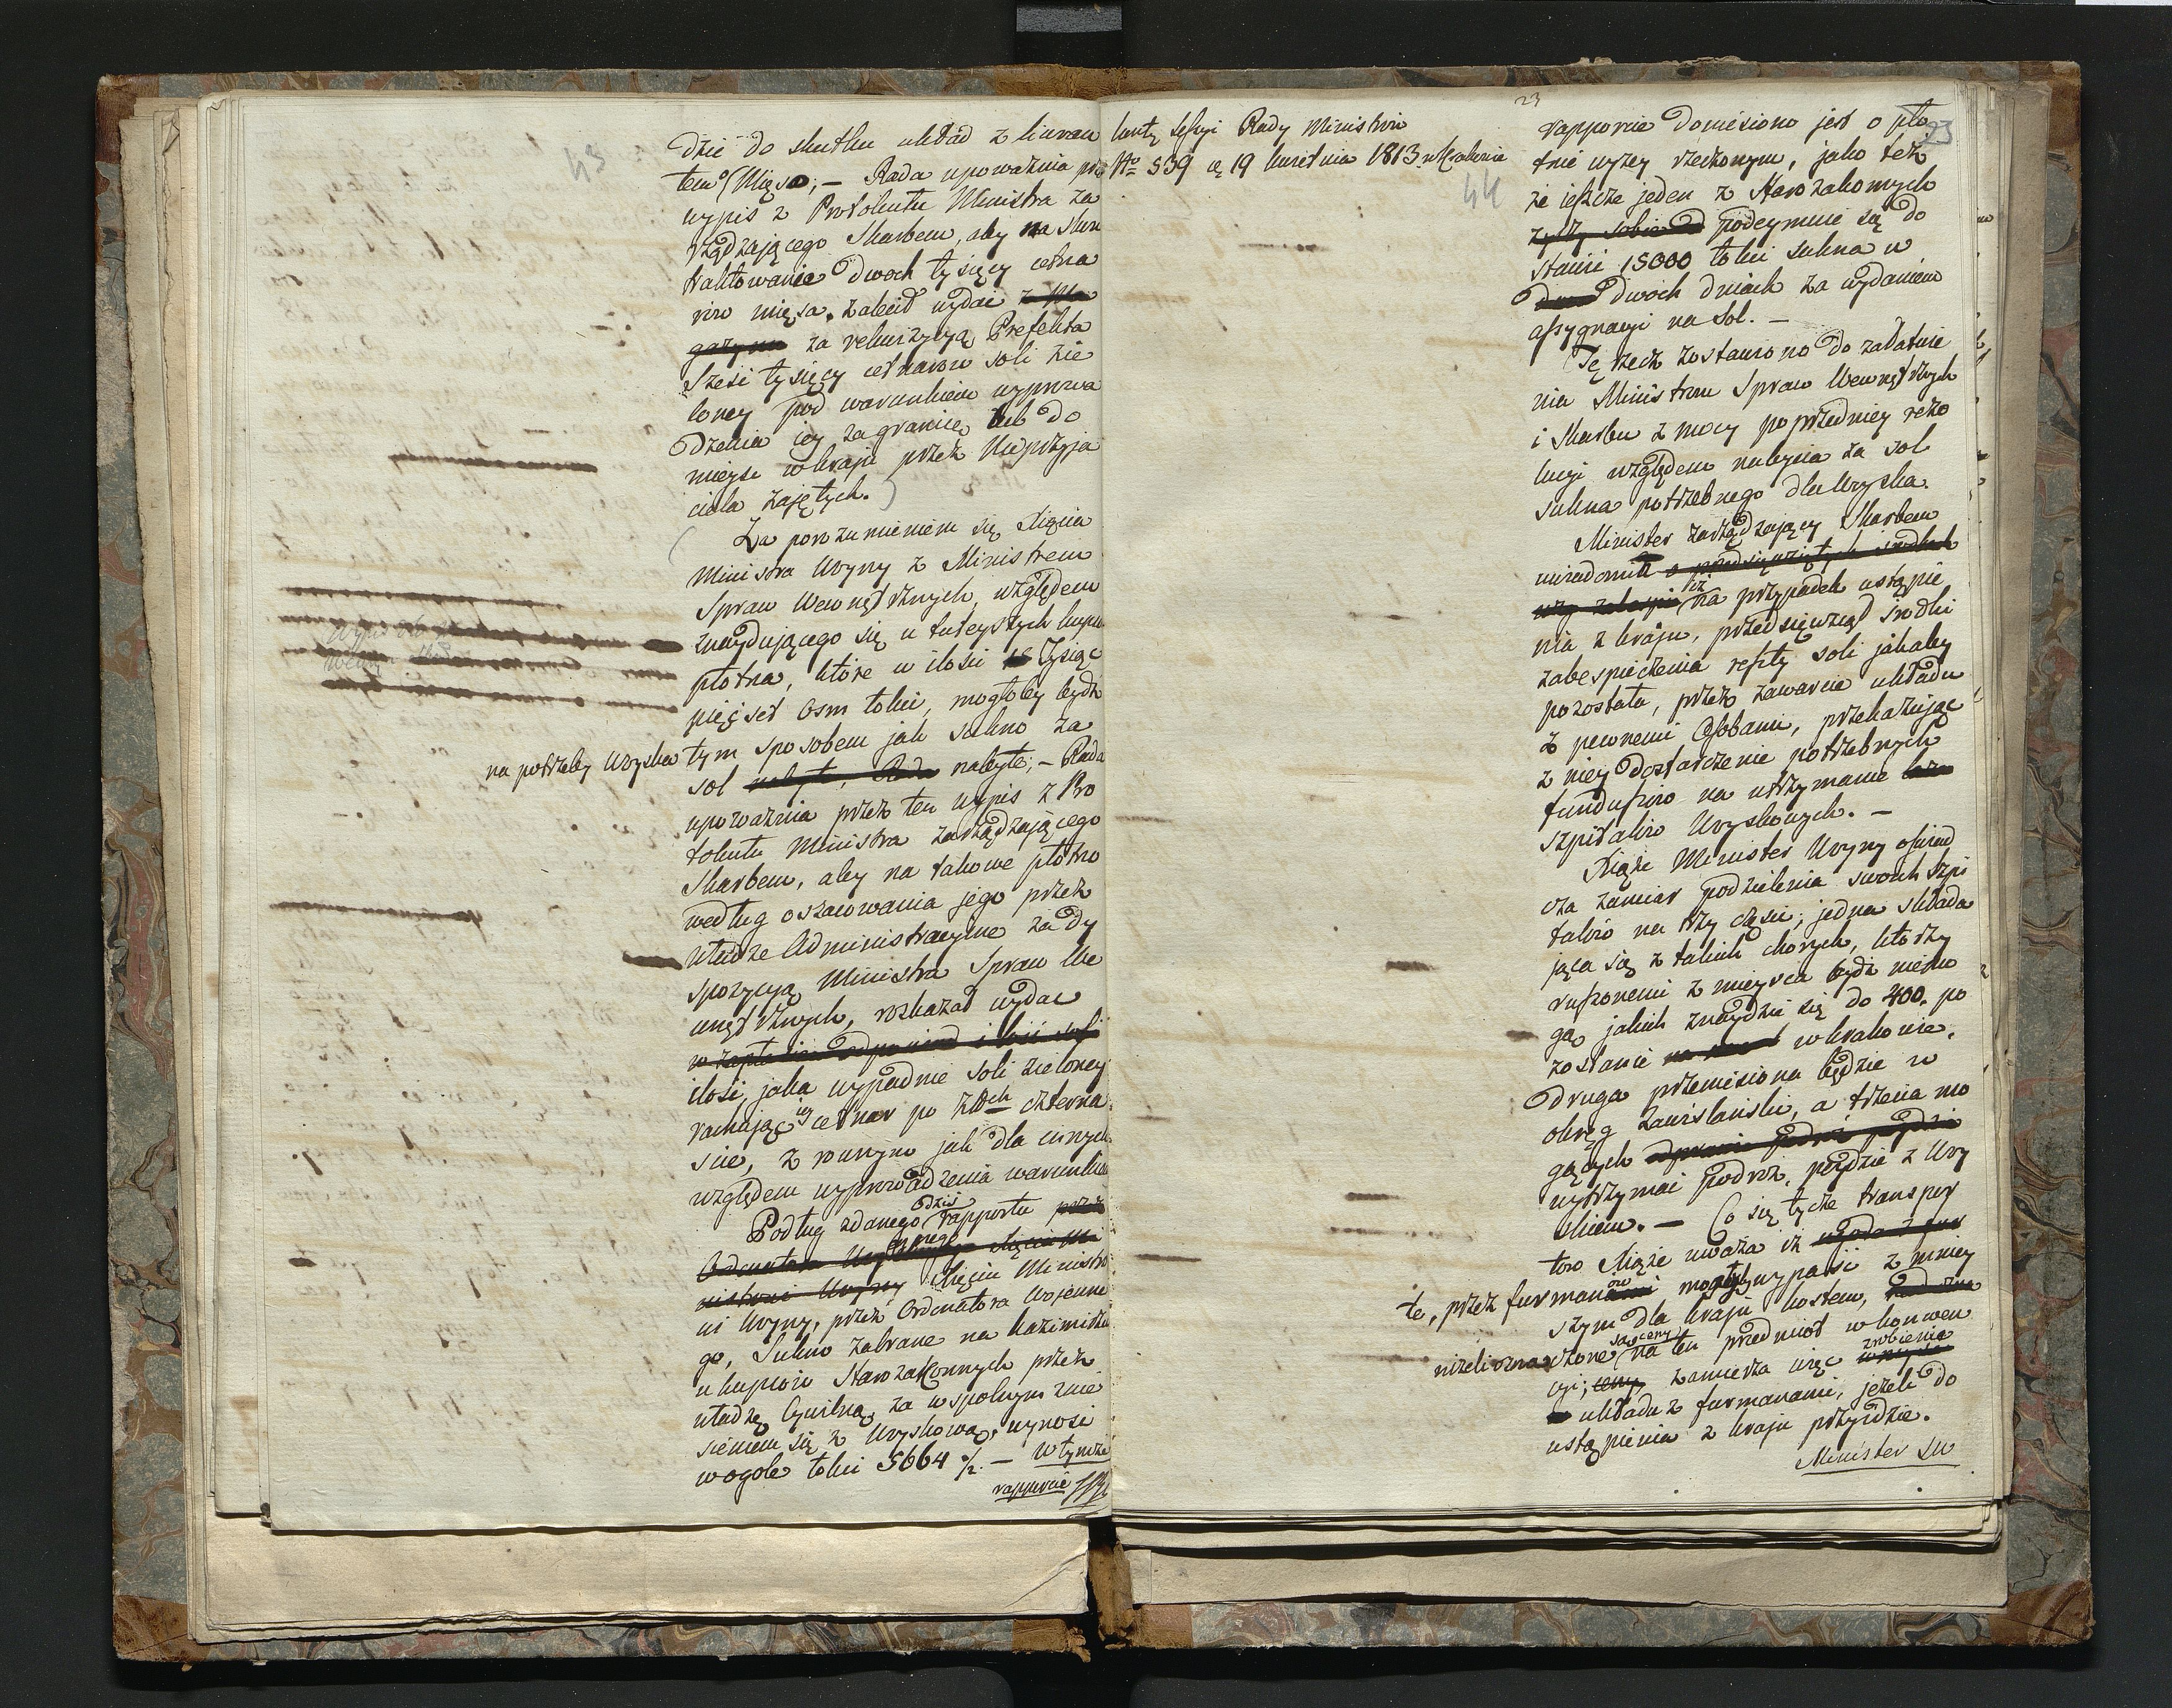 43
dzie do skutku układ z liwran
tem (Mięso; — Rada upoważnia prz
wypis z Protokułu Ministra za
rządzaiącego Skarbem, aby na
traktowanie dwoch tysięcy cetna
row mięsa, zalecił wydać
za rekwizycyą Prefekta
Sześć tysięcy cetnarow soli zie
loney pod warunkiem wyprowa
dzenia iey zagranicę lub do
mieysc w kraju przez Nieprzyja
ciela zajętych.)
(Za porozumieniem się Xięcia
Ministra Woyny z Ministrem
Spraw Wewnętrznych, względem
znayduiącego się u tuteyszych kupc
płotna, które w ilości Tysiąc
pięćset Osm tokci, mogłoby bydź
na potrzeby Woyska tym sposobem jak sukno za
sol nabyte; — Rada
upoważnia przez ten wypis z Pro
tokułu Ministra zarządzającego
Skarbem, aby na takowe płotno
według oszacowania jego przez
władze Administracyine za dy
spozycyą Ministra Spraw We
wnętrznych, rozkazał wydać
ilość, jaka wypadnie soli zieloney
rachując iey cetnar po Złch czterna
ście, z rownym jak dla innych
względem wyprowadzenia warunkiem
Podług zdanego dziś rapportu
Xięciu Ministro
wi Woyny, przez Ordonatora Wojenne
go, Sukno zabrane na Kazimirzu
u kupców Starozakonnych przez
władzę Cywilną, za wspolnym znie
sieniem się z Woyskową, wynosi
wogole tokci 5664 ½. — W tymże
rapporcie
kuntz Sessyi Rady Ministrów
No 539 d. 19 Kwietnia 1813 w Krakowie
44
23
23
rapporcie doniesiono jest o pło
tnie wyżey rzeczonym, jako też
że ieszcze jeden z Starozakonnych
podeymuie się do
stawić 15000 tokci sukna w
dwoch dniach za wydaniem
assygnacyi na Sol. —
Tę rzecz zostawiono do załatwie
nia Ministrom Spraw Wewnętrznych
i Skarbu z mocy poprzedniey rezo
lucyi względem nabycia za sol
sukna potrzebnego dla Woyska.
Minister zarządzaiący Skarbem
uwiadomił
iż na przypadek ustąpie
nia z kraju, przedsięwziął środki
zabespieczenia reszty soli jakaby
pozostała, przez zawarcie układu
z pewnemi Osobami, przekazuiąc
z niey dostarczenie potrzebnych
funduszow na utrzymanie
szpitalow Woyskowych. —
Xiąże Minister Woyny oświad
cza zamiar podzielenia swoich Szpi
talów na trzy części; jedna składa
jąca się z takich chorych, którzy
ruszonemi z mieysca bydź niemo
gą, jakich znaydzie się do 400. po
zostanie w krakowie,
druga przeniesiona będzie w
okręg Zawiślański, a trzecia mo
gących
wytrzymać podroż, póydzie z Woy
skiem. — Co się tycze transpor
tow Xiąże uważa iż
te, przez furmanów mogłyby wypaść z mniey
szym dla kraju kosztem,
niżeli oznaczone są ceny na ten przedmiot w konwen
cyi; zamierza więc zrobienie
układu z furmanami, jeżeli do
ustąpienia z kraju przyidzie.
Minister SW